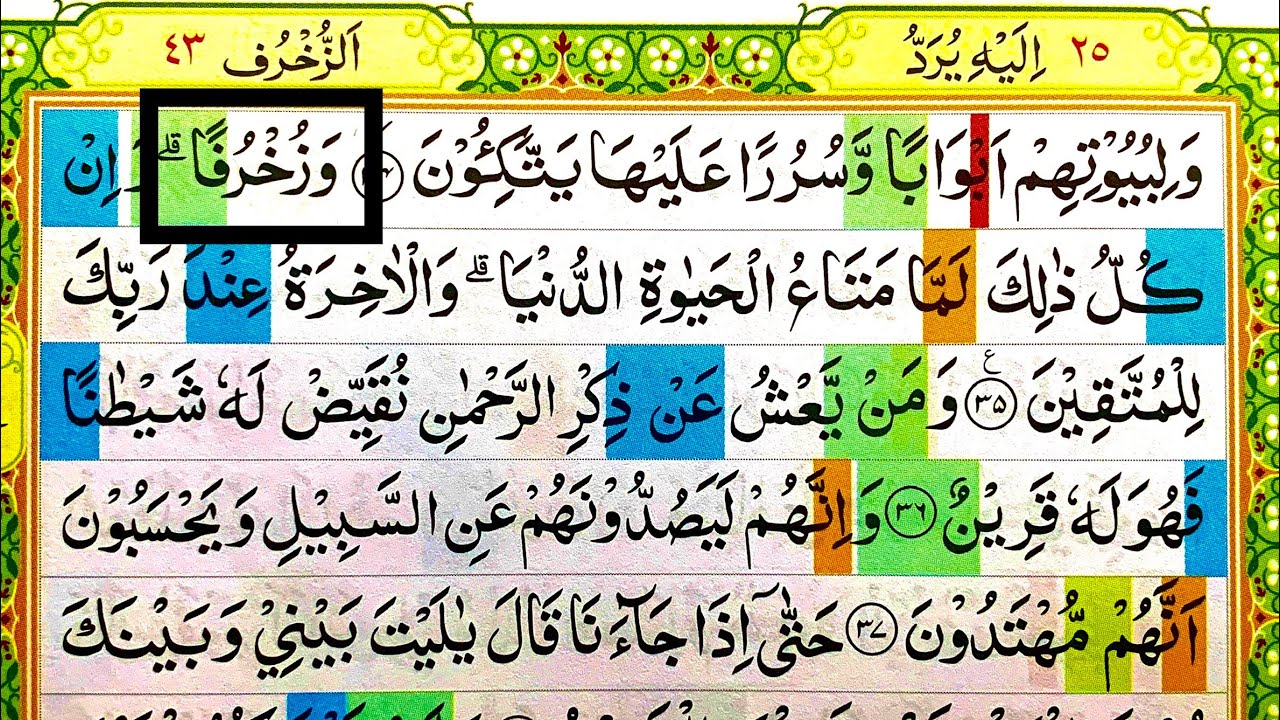 ٢٥ اِلَيْهِ يُرَدُّ
اَلزُّخْرُف ٤٣
وَلِبُيُوْتِهِمْ اَبْوَابًا وَّسُرُرًا عَلَيْهَا يَتَّكِـُٔوْنَ ۝٣٤ وَزُخْرُفًا ۗ وَاِنْ
كُلُّ ذٰلِكَ لَمَّا مَتَاعُ الْحَيٰوةِ الدُّنْيَا ۗ وَالْاٰخِرَةُ عِنْدَ رَبِّكَ
لِلْمُتَّقِيْنَ ۝٣٥ ع وَمَنْ يَّعْشُ عَنْ ذِكْرِ الرَّحْمٰنِ نُقَيِّضْ لَهٗ شَيْطٰنًا
فَهُوَ لَهٗ قَرِيْنٌ ۝٣٦ وَاِنَّهُمْ لَيَصُدُّوْنَهُمْ عَنِ السَّبِيْلِ وَيَحْسَبُوْنَ
اَنَّهُمْ مُّهْتَدُوْنَ ۝٣٧ حَتّٰىٓ اِذَا جَاۤءَنَا قَالَ يٰلَيْتَ بَيْنِيْ وَبَيْنَكَ